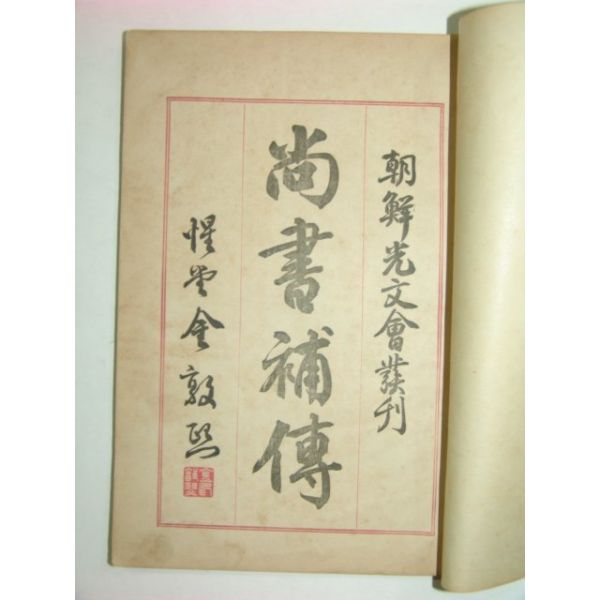 朝鮮光文會發刊
尚書補傳
惺堂金敦熙